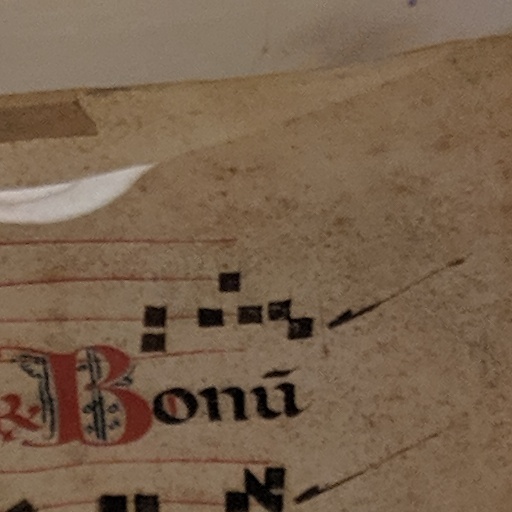 Bonū